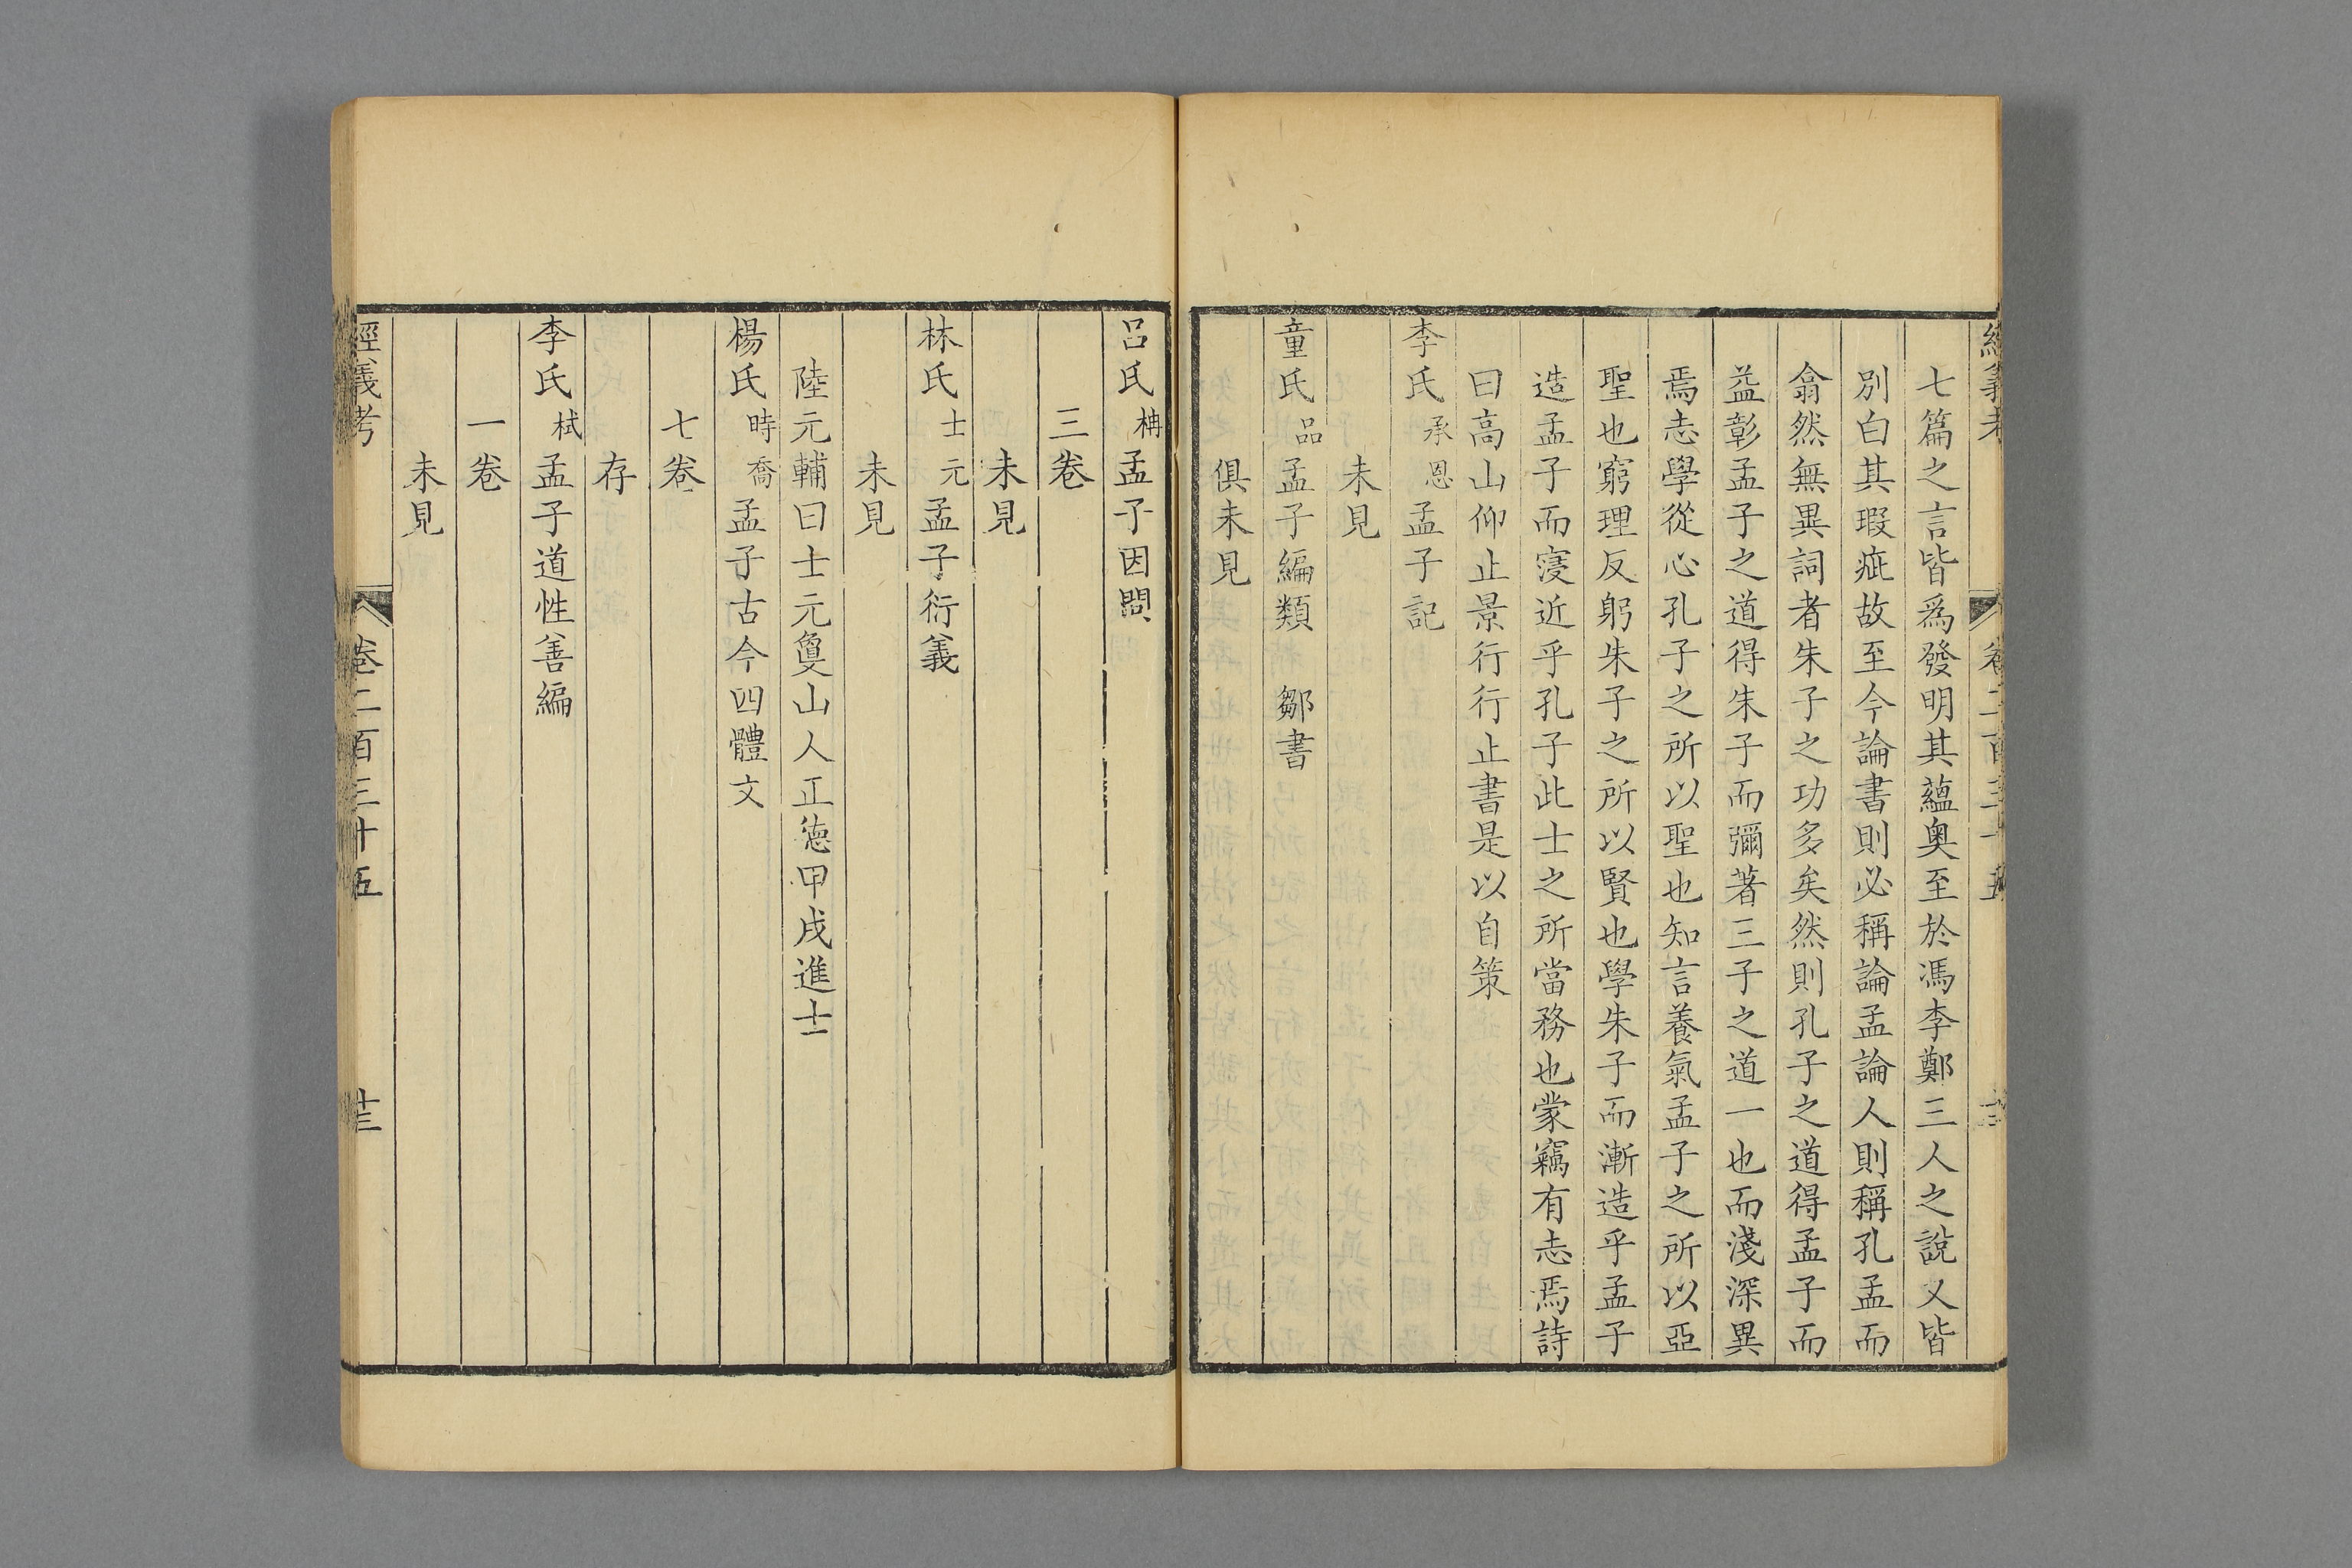 七篇之言皆爲發明其蘊奥至於馮李鄭三人之說又皆
別白其瑕疵故至今論書則必稱論孟論人則稱孔孟而
翕然無異詞者朱子之功多矣然則孔子之道得孟子而
益彰孟子之道得朱子而彌著三子之道一也而淺深異
焉志學從心孔子之所以聖也知言養氣孟子之所以亞
聖也窮理反躬朱子之所以賢也學朱子而漸造乎孟子
造孟子而寖近乎孔子此士之所當務也蒙竊有志焉詩
曰高山仰止景行行止書是以自策
李氏承恩孟子記
未見
童氏品孟子編類　鄒書
俱未見
呂氏柟孟子因問
三卷
未見
林氏士元孟子衍義
未見
陸元輔曰士元夐山人正德甲戌進士
楊氏時喬孟子古今四體文
七卷
存
李氏栻孟子道性善編
一卷
未見
經義考　卷二百三十五